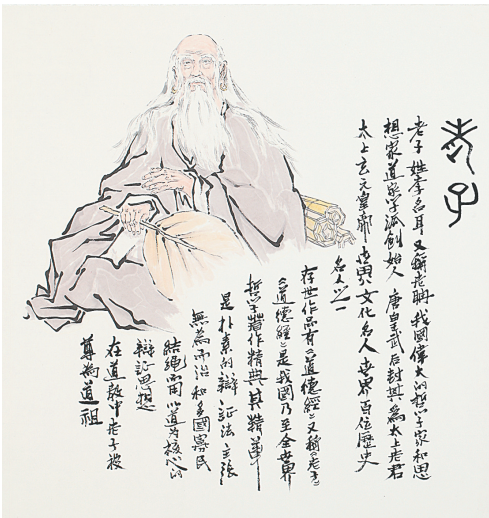 老子
老子姓李名耳又稱老聃我國偉大的哲學家和思
想家道家學派創始人唐皇武后封其為太上老君
太上玄元皇帝世界文化名人世界百位歷史
名人之一
存世作品有《道德經》又稱《老子》
《道德經》是我國乃至全世界
哲學著作精典其精華
是朴素的辯証法主張
無為而治和乡國寡民
結繩而用以道为核心的
辯証思想
在道教中老子被
尊為道祖